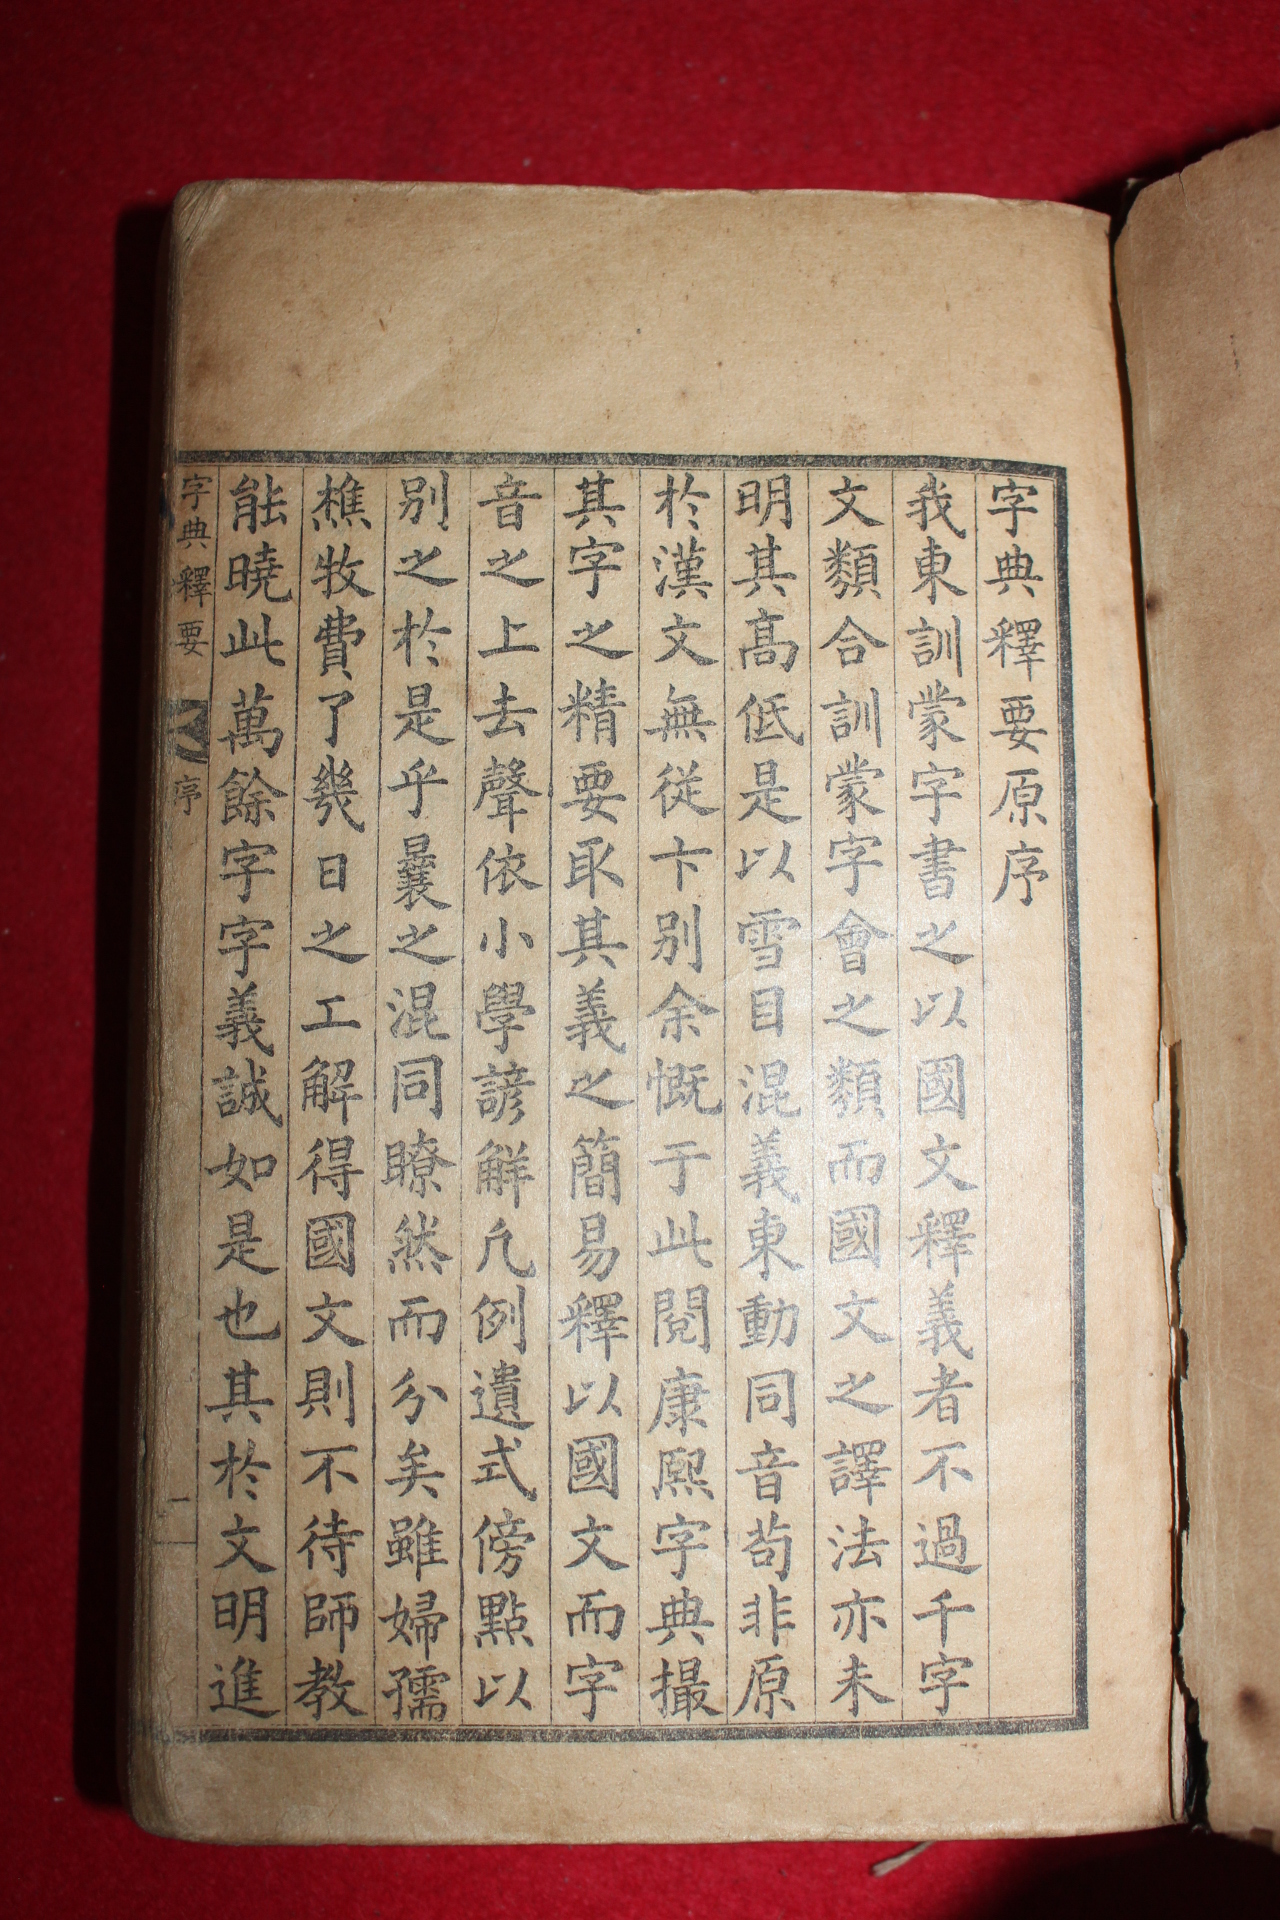 字典釋要原序
我東訓蒙字書之以國文釋義者不過千字
文類合訓蒙字會之類而國文之譯法亦未
明其高低是以雪目混義東動同音苟非原
於漢文無從卞別余慨于此閱康熙字典撮
其字之精要取其義之簡易釋以國文而字
音之上去聲依小學諺觧凡例遺式傍點以
別之於是乎曩之混同瞭然而分矣雖婦孺
樵牧費了幾日之工解得國文則不待師教
能曉此萬餘字字義誠如是也其於文明進
字典釋要 序 二